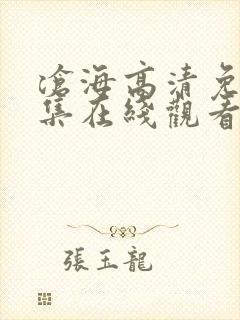 滄海高清免
集在綫觀看
張玉龍